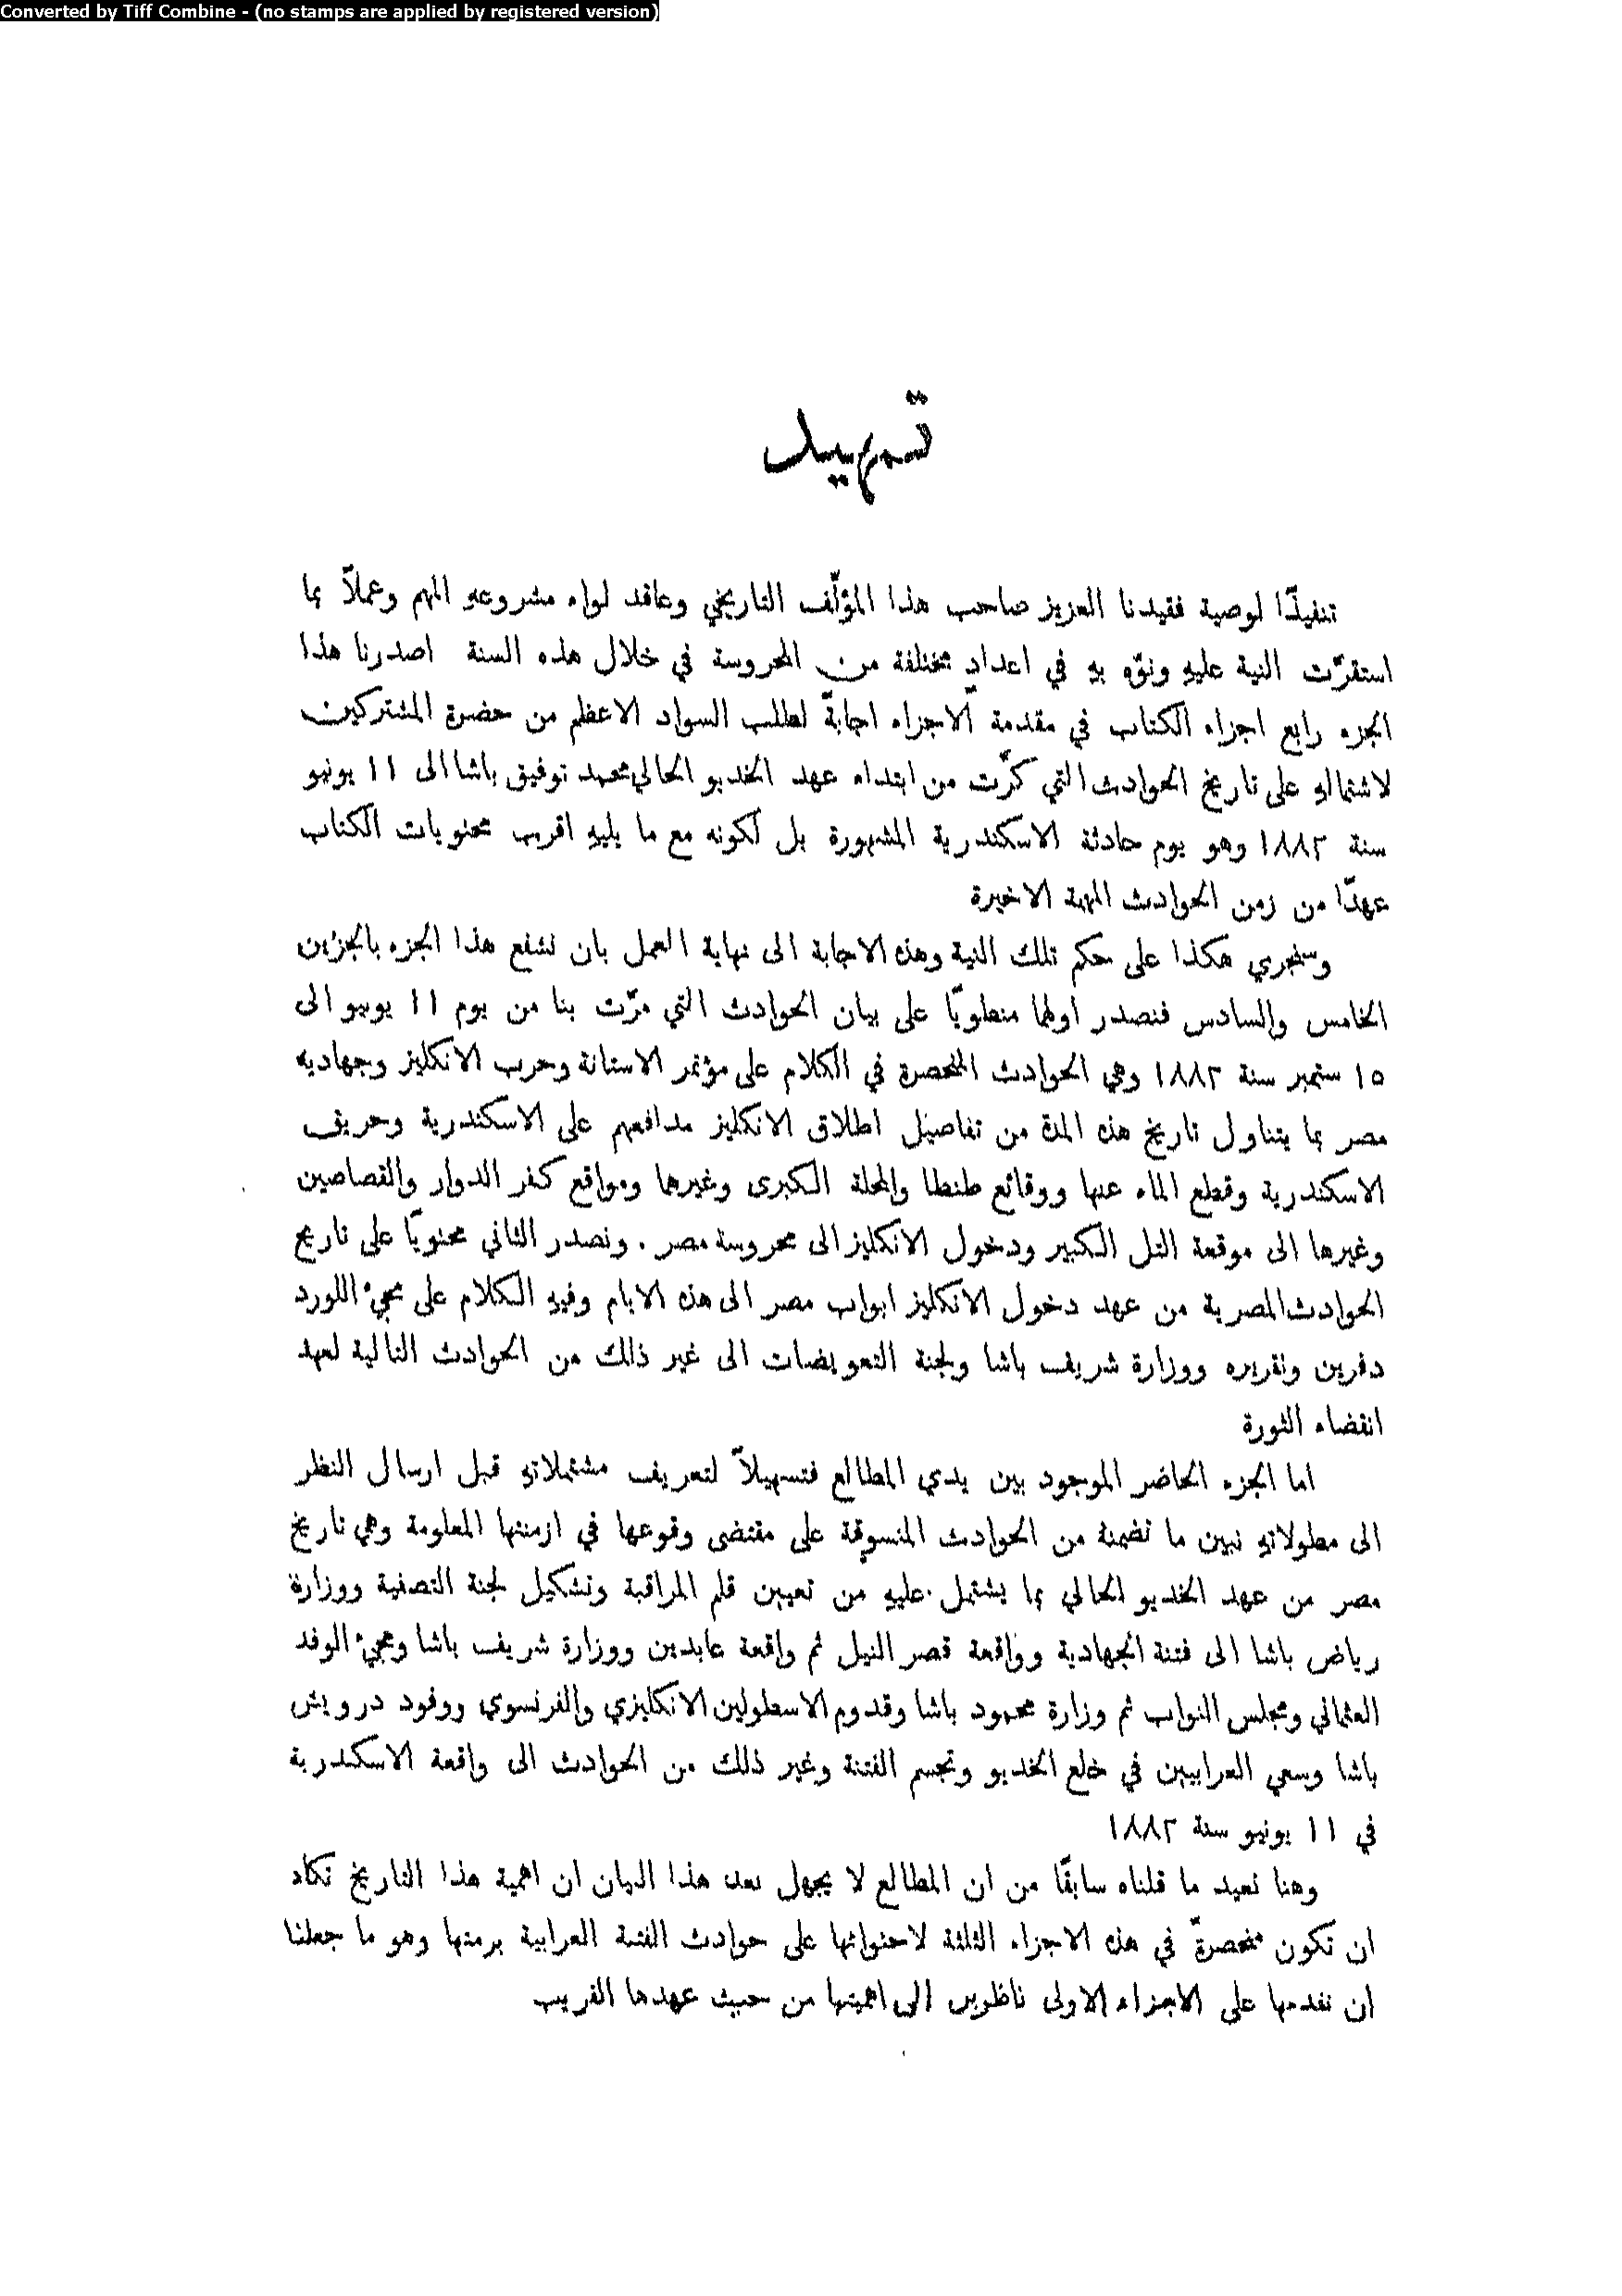 Converted by Tiff Combine - (no stamps are applied by registered version)
تمهيد
تنفيذًا لوصية فقيدنا العزيز صاحب هذا المؤلَّف التاريخي وعاقد لواء مشروعهِ المهم وعملاً بما
استقرَّت النية عليهِ ونوّه بهِ في اعدادٍ مختلفة من المحروسة في خلال هذه السنة اصدرنا هذا
الجزء رابع اجزاء الكتاب في مقدمة الاجزاء اجابةً لطلب السواد الاعظم من حضرة المشتركين
لاشتمالهِ على تاريخ الحوادث التي كرَّت من ابتداء عهد الخديو الحالي محمد توفيق باشا الى ١١ يونيو
سنة ١٨٨٢ وهو يوم حادثة الاسكندرية المشهورة بل لكونه مع ما يليهِ اقرب محتويات الكتاب
عهدًا من زمن الحوادث المهمة الاخيرة
وسنجري هكذا على حكم تلك النية وهذه الاجابة الى نهاية العمل بان نشفع هذا الجزء بالجزئين
الخامس والسادس فنصدر اولهما منطويًا على بيان الحوادث التي مرَّت بنا من يوم ١١ يونيو الى
١٥ ستمبر سنة ١٨٨٢ وهي الحوادث المنحصرة في الكلام على مؤتمر الاستانة وحرب الانكليز وجهاديه
مصر بما يتناول تاريخ هذه المدة من تفاصيل اطلاق الانكليز مدافعهم على الاسكندرية وحريق
الاسكندرية وقطع الماء عنها ووقائع طنطا والمحلة الكبرى وغيرها ومواقع كفر الدوار والقصاصين
وغيرها الى موقعة التل الكبير ودخول الانكليز الى محروسة مصر . ونصدر الثاني محتويًا على تاريخ
الحوادث المصرية من عهد دخول الانكليز ابواب مصر الى هذه الايام وفيهِ الكلام على مجيء اللورد
دفرين وتقريره ووزارة شريف باشا ولجنة التعويضات الى غير ذلك من الحوادث التالية لعهد
انقضاء الثورة
اما الجزء الحاضر الموجود بين يدي المطالع فتسهيلاً لتعريف مشتملاتهِ قبل ارسال النظر
الى مطولاتهِ نبين ما تضمنهُ من الحوادث المنسوقة على مقتضى وقوعها في ازمنتها المعلومة وهي تاريخ
مصر من عهد الخديو الحالي بما يشتمل عليهِ من تعيين قلم المراقبة وتشكيل لجنة التصفية ووزارة
رياض باشا الى فتنة الجهادية وواقعة قصر النيل ثم واقعة عابدين ووزارة شريف باشا ومجيء الوفد
العثماني ومجلس النواب ثم وزارة محمود باشا وقدوم الاسطولين الانكليزي والفرنسوي ووفود درويش
باشا وسعي العرابيين في خلع الخديو وتجسم الفتنة وغير ذلك من الحوادث الى واقعة الاسكندرية
في ١١ يونيو سنة ١٨٨٢
وهنا نعيد ما قلناه سابقًا من ان المطالع لا يجهل بعد هذا البيان ان اهمية هذا التاريخ تكاد
ان تكون منحصرةً في هذه الاجزاء الثلثة لاحتوائها على حوادث الفتنة العرابية برمتها وهو ما جعلنا
ان نقدمها على الاجزاء الاولى ناظرين الى اهميتها من حيث عهدها القريب